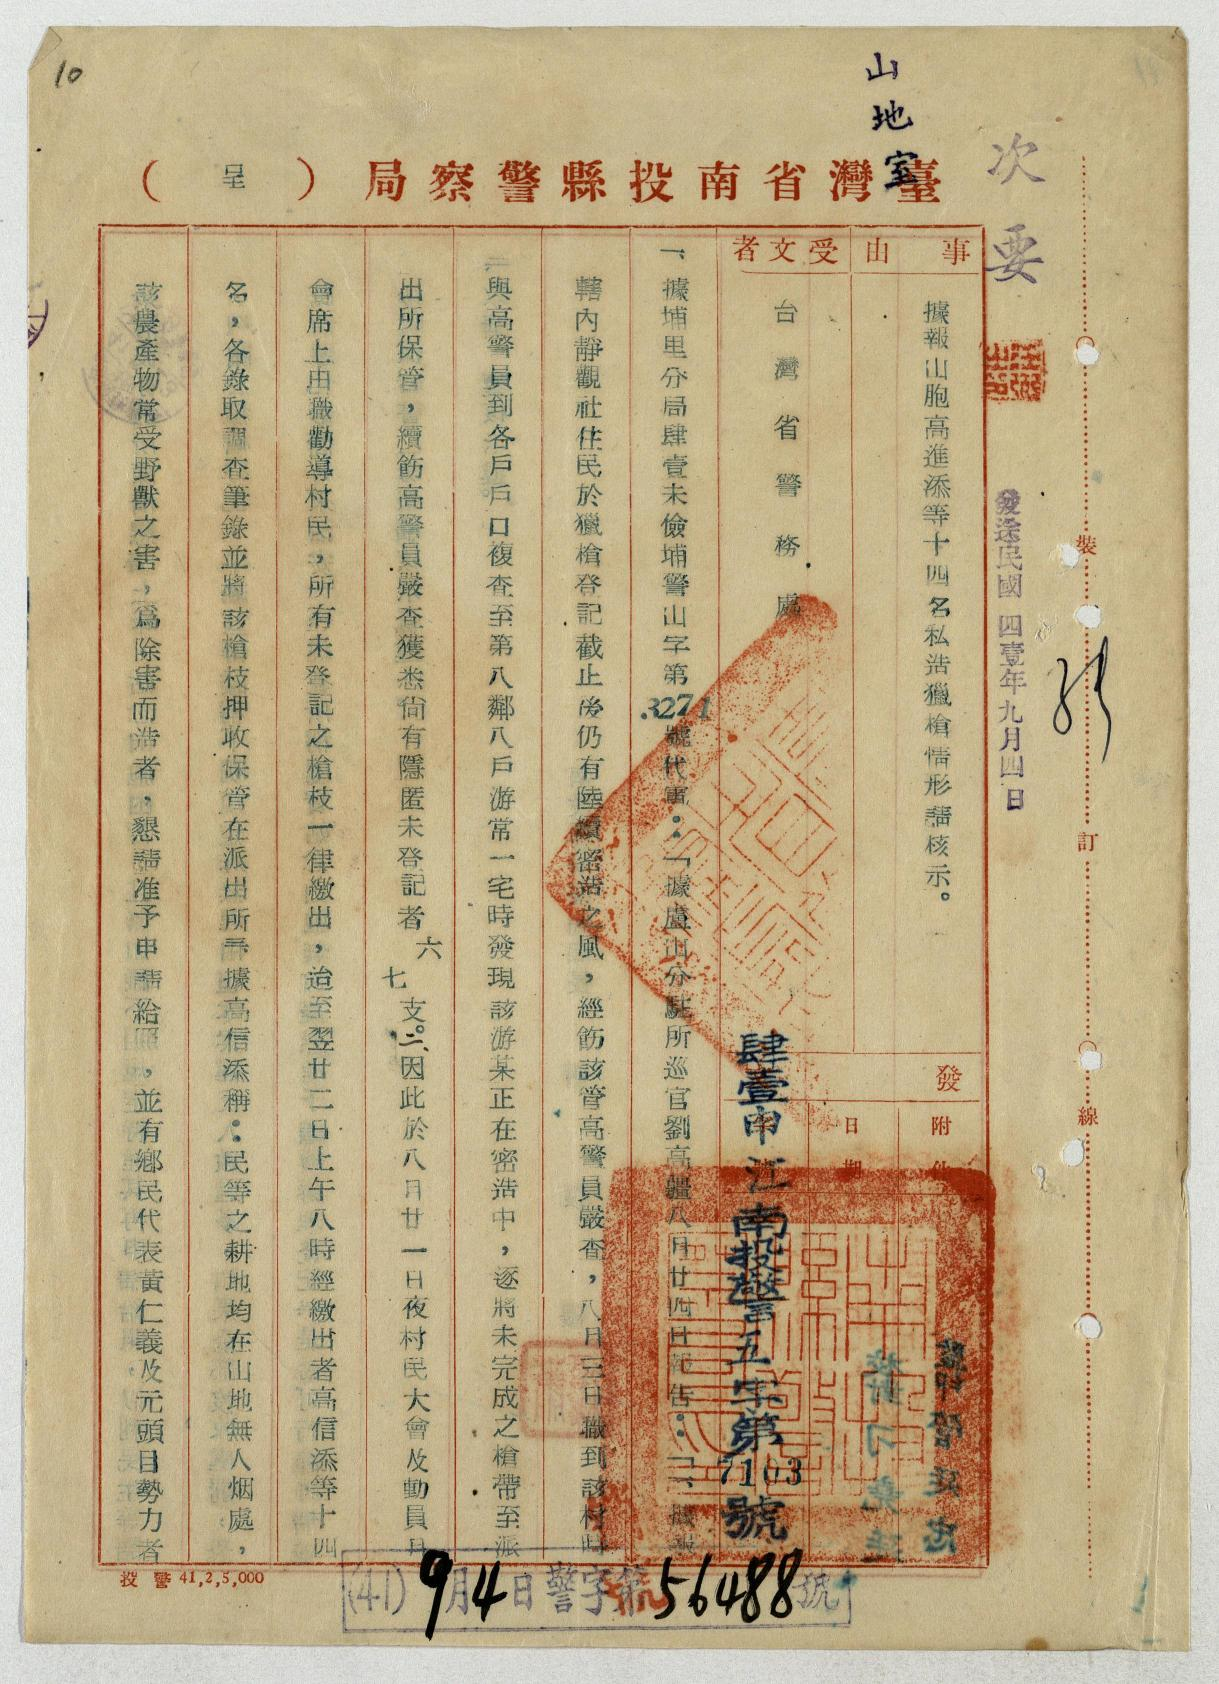 10
山地室
次要
臺灣省南投縣警察局（呈）
事由
據報山胞高進添等十四名私造獵槍情形請核示。
受文者
台灣省警務處
發
附件
日期
肆壹申江南投警五字第7103號
發送民國四壹年九月四日
裝
訂
線
一、據埔里分局肆壹未儉埔警山字第3271號代電：「據盧山分駐所巡官劉高疆八月廿四日報告：「一、據報
轄內靜觀社住民於獵槍登記截止後仍有陸續密造之風，經飭該管高警員嚴查，八月三日職到該村時
與高警員到各戶戶口複查至第八鄰八戶游常一宅時發現該游某正在密造中，逐將未完成之槍帶至派
出所保管，續飭高警員嚴查獲悉尚有隱匿未登記者六七支。二、因此於八月廿一日夜村民大會及動員月
會席上由職勸導村民，所有未登記之槍枝一律繳出，迨至翌廿二日上午八時經繳出者高信添等十四
名，各錄取調查筆錄並將該槍枝押收保管在派出所尋據高信添稱：民等之耕地均在山地無人烟處，
該農產物常受野獸之害，爲除害而造者，懇請准予申請給照，並有鄉民代表黃仁義及元頭目勢力者
投警 41,2,5,000
(41)9月4日警字第56488號